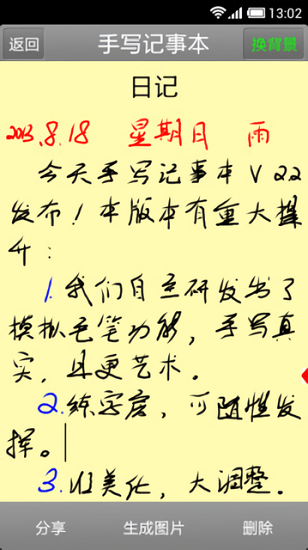 13:02
返回 手写记事本 换背景
日记
2013.8.18 星期日 雨
今天手写记事本 V 2.2
发布！本版本有重大提
升：
1.我们自主研发了
模拟毛笔功能，手写真
实，且更艺术。
2.练字度，可随性发
挥。
3.UI美化，大调整。
分享 生成图片 删除